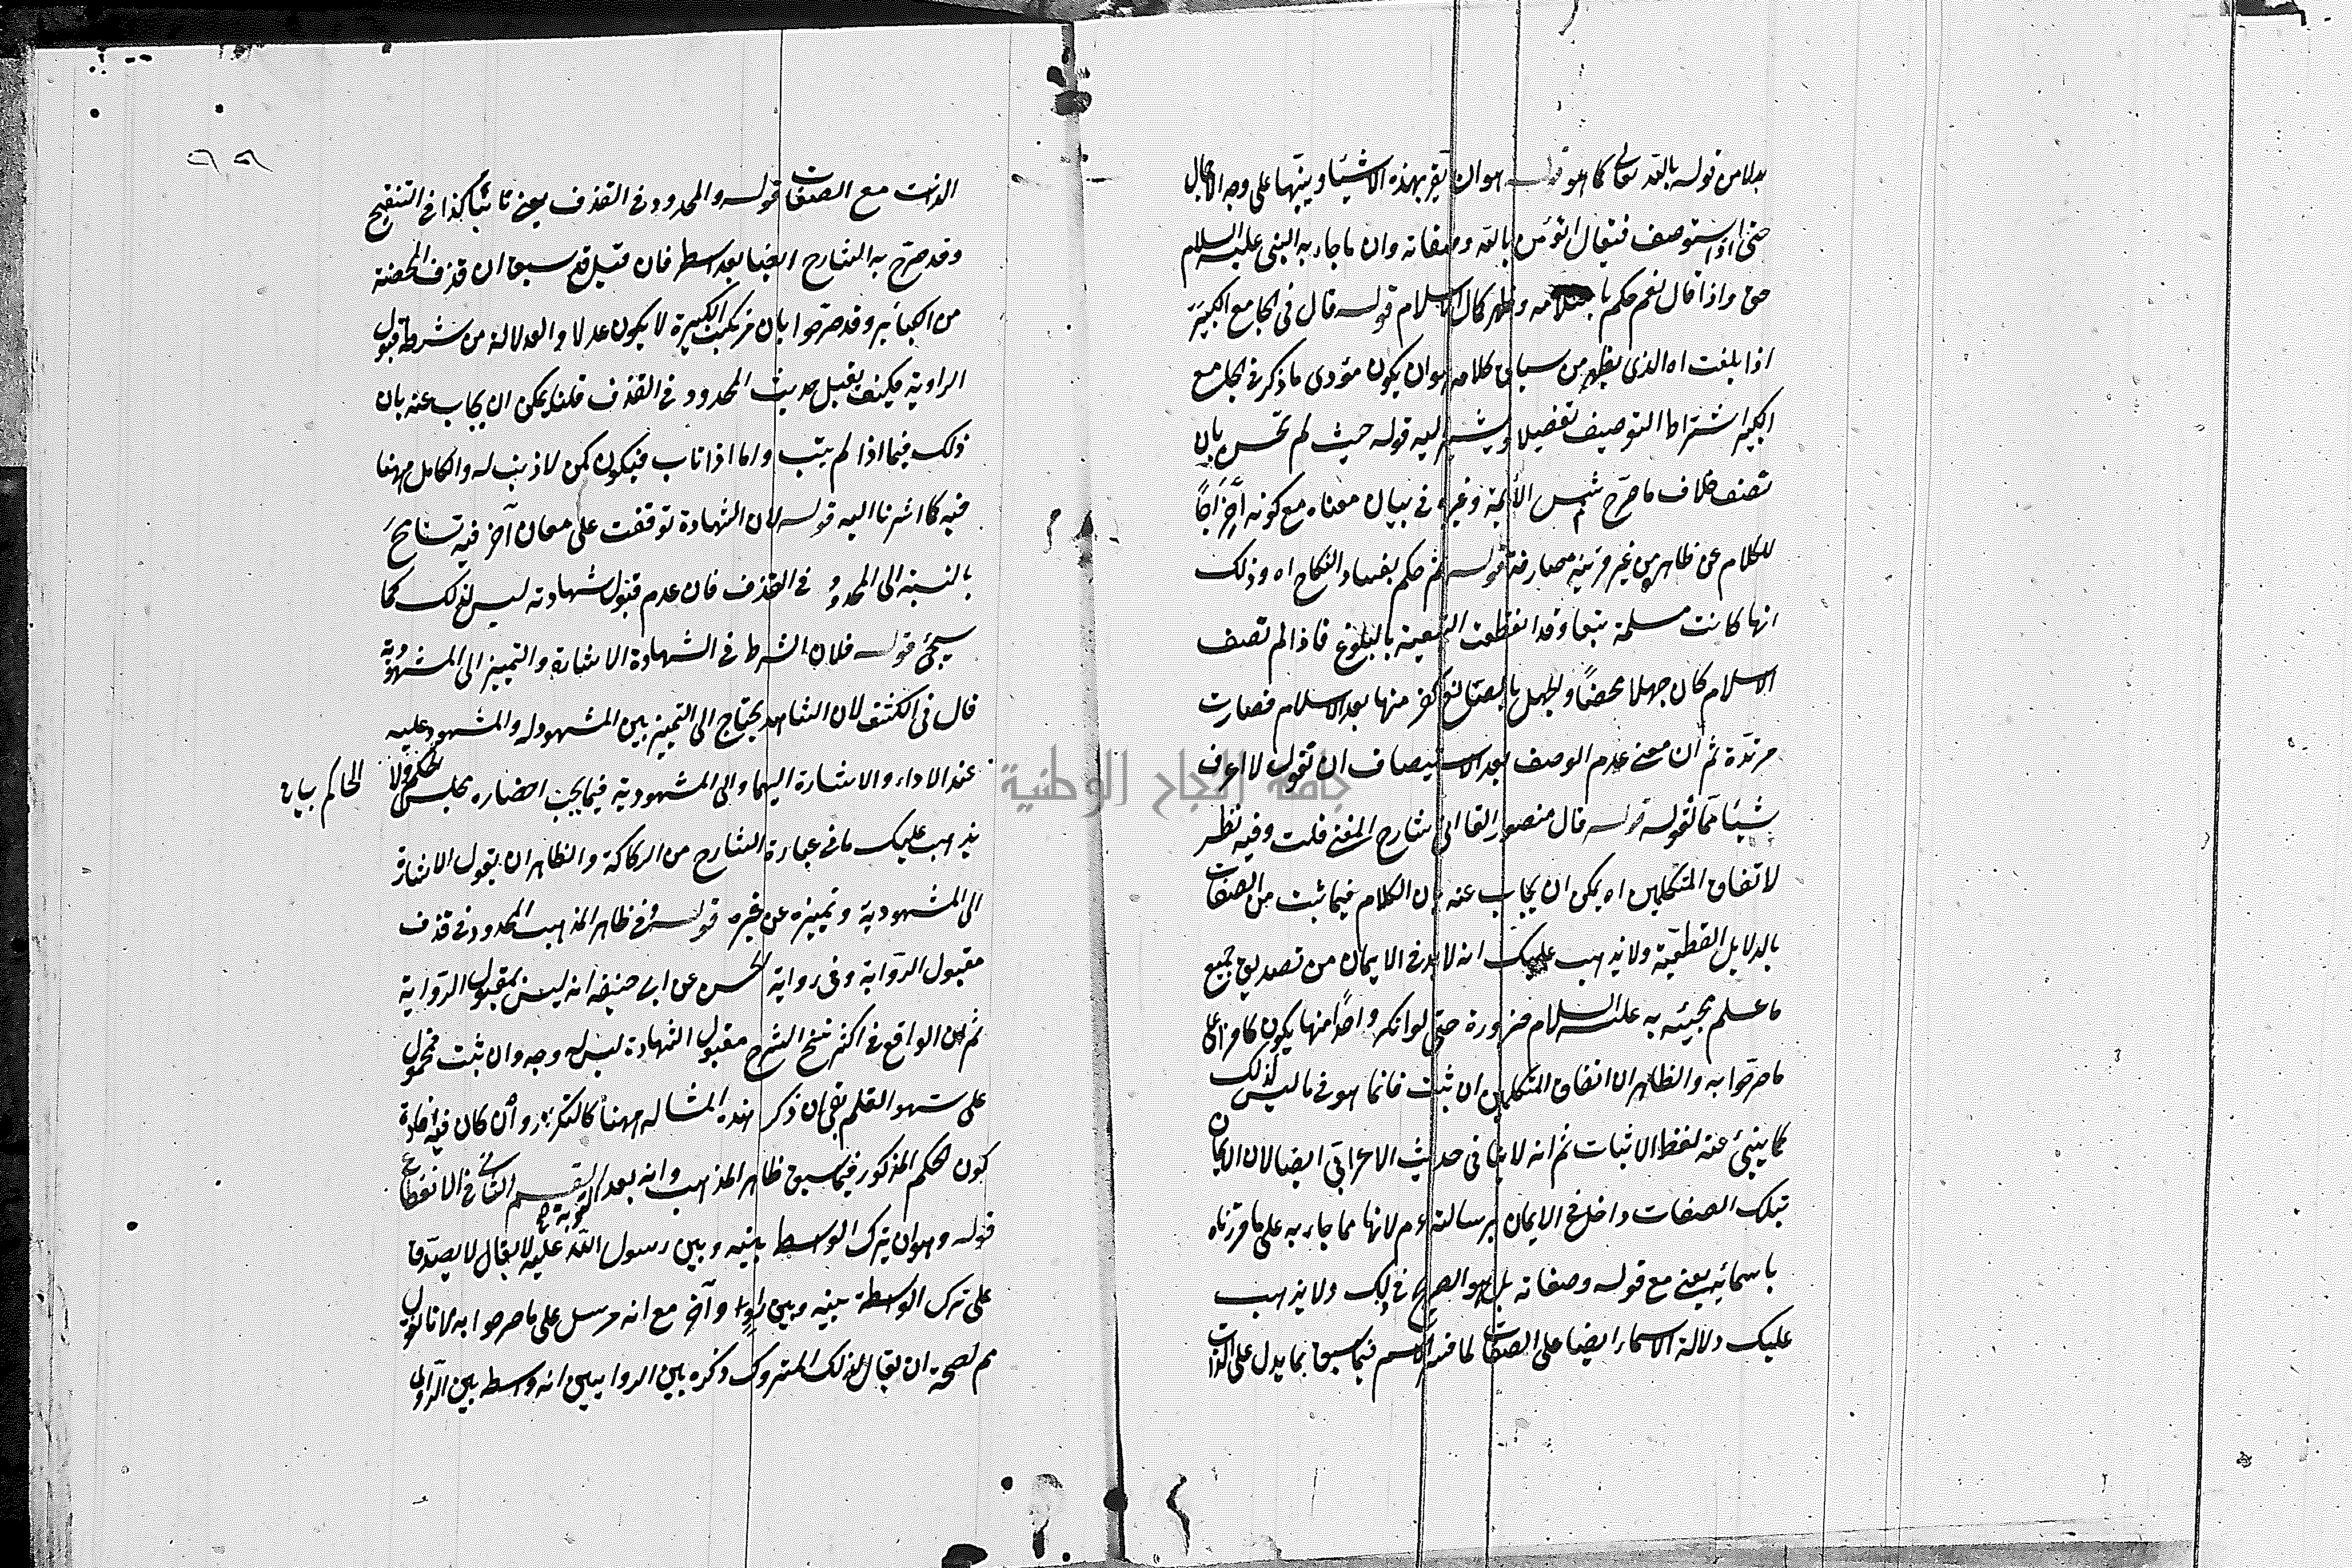 بدلا من قوله بالله تعالى كما هو قوله هو ان يقر بهذه الاشياء ويبينها على وجه الاجمال
حتى اذا استوصف فيقال اتؤمن بالله وصفاته وان ما جاء به النبي عليه السلام
حق واذا قال نعم حكم باسلامه وظهر كمال الاسلام قوله قال في الجامع الكبير
اذا بلغت اه الذي يظهر من سياق كلامه هو ان يكون مؤدى ما ذكر في الجامع
الكبير اشتراط التوصيف تفصيلا ويشير اليه قوله حيث لم تحسن بان
تصف خلاف ما صرح شمس الأئمة وغيره في بيان معناه مع كونه اخراجا
للكلام عن ظاهره من غير قرينة صارفة قوله ثم حكم بفساد النكاح اه وذلك
انها كانت مسلمة تبعا وقد انقطعت التبعية بالبلوغ فاذا لم تصف
الاسلام كان جهلا محضا والجهل بالصانع كفر منها بعد الاسلام فصارت
مرتدة ثم ان معنى عدم الوصف بعد الاستيصاف ان تقول لا اعرف
شيئا مما تقوله قوله قال منصور القاآني شارح المغني قلت وفيه نظر
لاتفاق المتكلمين اه يمكن ان يجاب عنه بان الكلام فيما ثبت من الصفات
بالدلايل القطعية ولا يذهب عليك انه لا بد في الايمان من تصديق جميع
ما علم مجيئه به عليه السلام ضرورة حتى لو انكر واحدا منها يكون كافرا على
ما صرحوا به والظاهر ان اتفاق المتكلمين ان ثبت فانما هو في ما ليس كذلك
كما ينبئ عنه لفظ الاثبات ثم انه لا ينافي حديث الاعرابي ايضا لان الايمان
بتلك الصفات داخل في الايمان برسالته ءم لانها مما جاء به على ما قررناه
باسمائه يعني مع قوله وصفاته بل هو الصريح في ذلك ولا يذهب
عليك دلالة الاسماء ايضا على الصفات لما فسر الاسم فيما سبق بما يدل على الذات
الذات مع الصفات قوله والمحدود في القذف يعني تائبا كذا في التنقيح
وقد صرح به الشارح ايضا بعد اسطر فان قيل قد سبق ان قذف المحصنة
من الكبائر وقد صرحوا بان مرتكب الكبيرة لا يكون عدلا والعدالة من شرط قبول
الراوية فكيف يقبل حديث المحدود في القذف قلنا يمكن ان يجاب عنه بان
ذلك فيما اذا لم يتب واما اذا تاب فيكون كمن لا ذنب له والكامل ههنا
فيه كما اشرنا اليه قوله لان الشهادة توقفت على معان آخر فيه تسامح
بالنسبة الى المحدود في القذف فان عدم قبول شهادته ليس لذلك كما
سيجئ قوله فلان الشرط في الشهادة الاشارة والتمييز الى المشهود به
قال في الكشف لان الشاهد يحتاج الى التمييز بين المشهود له والمشهود عليه
عند الاداء والاشارة اليهما والى المشهود به فيما يجب احضاره مجلس الحكم ولا
الحاكم بيان
يذهب عليك ما في عبارة الشارح من الركاكة والظاهر ان يقول الاشارة
الى المشهود به وتمييزه عن غيره قوله وفي ظاهر المذهب المحدود في قذف
مقبول الرواية وفي رواية الحسن عن ابي حنيفة انه ليس بمقبول الرواية
ثم ان الواقع في اكثر نسخ الشرح مقبول الشهادة ليس له وجه وان ثبت فمحمول
على سهو القلم بقي ان ذكر هذه المسألة ههنا كالتكرار وان كان فيه افادة
كون الحكم المذكور فيما سبق ظاهر المذهب وانه بعد التوبة القسم الثاني في الانقطاع
قوله وهو ان يترك الوسط بينه وبين رسول الله عليه لا يقال لا يصدق
على ترك الواسطة بينه وبين راو وآخر مع انه مرسل على ما صرحوا به لانا نقول
مم لصحة ان يقال لذلك المتروك ذكره بين الراويين انه واسط بين الراوي
جامعة النجاح الوطنية